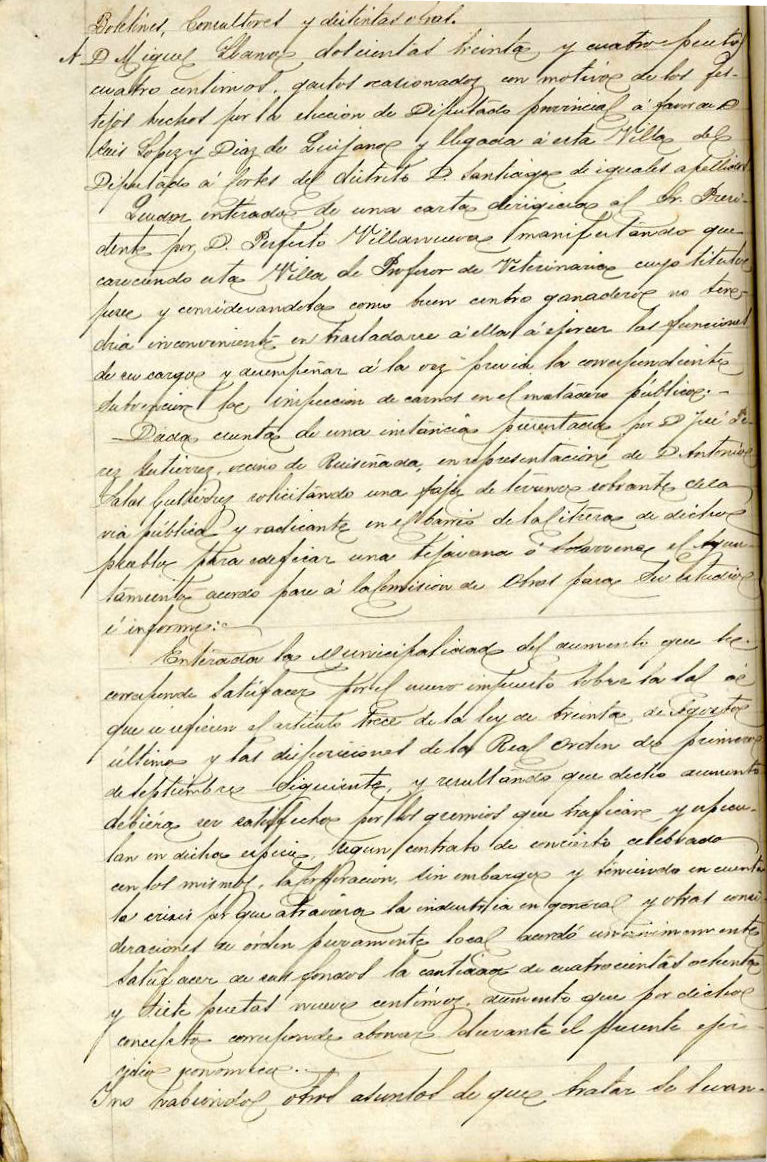 Boletines, Consultores y distintas obras.
A D Miguel Llano doscientas treinta y cuatro pesetas
cuatro centimos, gastos ocasionados con motivo de los fes-
tejos hechos por la elección de Diputado provincial á favor de D
Luis Lopez y Diaz de Quijano y llegada á esta Villa del
Diputado á Cortes del distrito D. Santiago de iguales apellidos.
Quedar enterada de una carta dirigida al Sr. Presi-
dente por D. Perfecto Villanueva manifestando que
careciendo esta Villa de Profesor de Veterinaria cuyo titulo
posee y considerandola como buen centro ganadero no ten-
dria inconveniente en trasladarse á ella á ejercer las funciones
de su cargo y desempeñar á la vez previa la correspondiente
subvencion la inspeccion de carnes en el matadero público.-
Dada cuenta de una instancia presentada por D José Pe-
rez Gutierrez, vecino de Ruiseñada, en representacion de D Antonio
Salas Gutierrez solicitando una faja de terreno sobrante de la
via pública y radicante en el barrio de la Citrera de dicho
pueblo para edificar una tejavana ó socarrena el Ayun-
tamiento acordó pase á la Comision de Obras para su estudio
é informe.-
Enterada la Municipalidad del aumento que le
corresponde satisfacer por el nuevo impuesto sobre la sal á
que se refieren el articulo trece de la ley de treinta de Agosto
último y las disposiciones de la Real orden de primero
de Septiembre siguiente, y resultando que dicho aumento
debiera ser satisfecho por los gremios que trafican y especu-
lan en dicha especie, segun contrato de concierto celebrado
con los mismos, la Corporacion, sin embargo y teniendo en cuenta
la crisis por que atraviesa la industria en general y otras consi-
deraciones de órden puramente local acordó unánimemente
satisfacer de sus fondos la cantidad de cuatrocientas ochenta
y siete pesetas nueve centimos, aumento que por dicho
concepto corresponde abonar durante el presente ejer-
cicio economico.-
Y no habiendo otros asuntos de que tratar se levan-